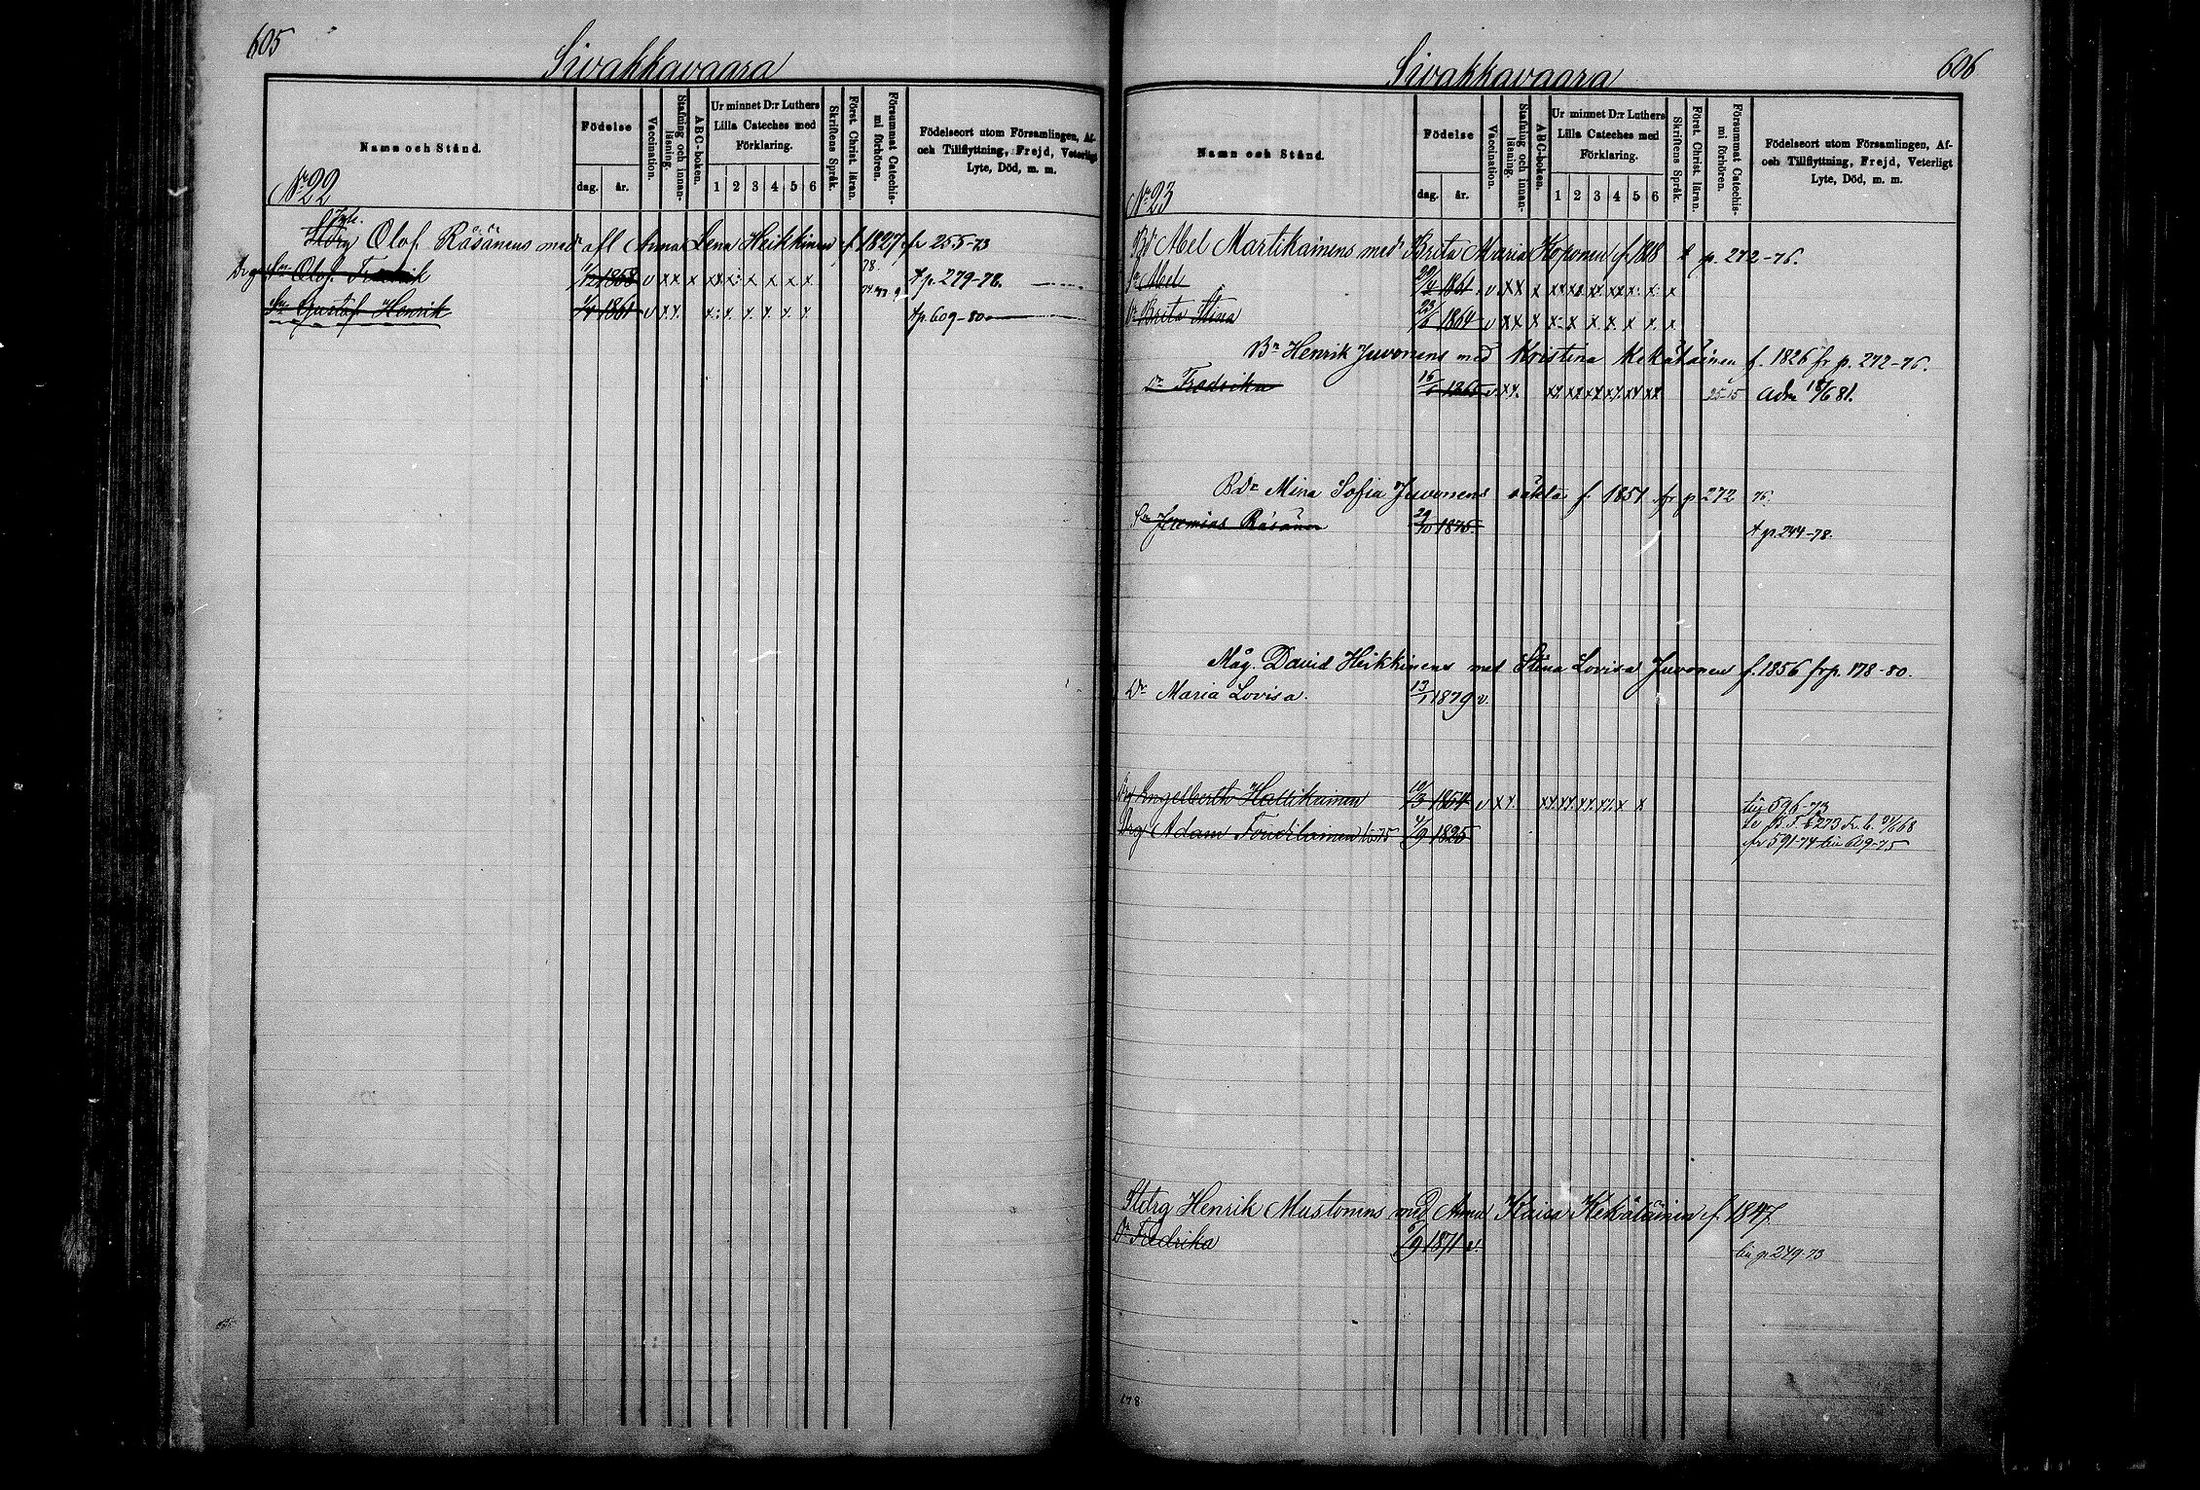 605
Sivakkavaara
Namn och Stånd.
Födelse
dag. år.
Vaccination.
Stafning och innanläsning.
ABC-boken.
Ur minnet D:r Luthers Lilla Cateches med Förklaring.
1 2 3 4 5 6
Skriftens Språk.
Först. Christ. läran.
Försummat Catechismi förhören.
Födelseort utom Församlingen, Af- och Tillflyttning, Frejd, Veterligt Lyte, Död, m. m.
No 22
Olof Räsänens med afl Anna Lena Heikkinen f. 1827 fr 255-73
Drg Sn Olof Fredrik 1/12 1858 v xx x xx x: x x x x 78. t p. 279-78.
Sn Gustaf Henrik 1/7 1861 v x.x. x: x. x x x x t p. 609-80
606
Sivakkavaara
Namn och Stånd.
Födelse
dag. år.
Vaccination.
Stafning och innanläsning.
ABC-boken.
Ur minnet D:r Luthers Lilla Cateches med Förklaring.
1 2 3 4 5 6
Skriftens Språk.
Först. Christ. läran.
Försummat Catechismi förhören.
Födelseort utom Församlingen, Af- och Tillflyttning, Frejd, Veterligt Lyte, Död, m. m.
No 23
Abel Martikainens med Brita Maria Koponen f. 1818 t p. 272-76.
Sn Abel 1861 v xx x xx xx xx xx x: x: x
Dr Brita Stina 1864 v xx x x: x x x x x x
Bn Henrik Juvonens med Kristina Kekäläinen f. 1826 fr p. 272-76.
Dr Fredrika 16/ 1865 v xx. xx xx xx xx xx xx 25 15 adm 18/6 81.
Bdr Mina Sofia Juvonens oäkta f. 1851 fr p 272 76.
Sn Jeremias Räsänen 29/10 1875 t p. 244-78.
Måg. David Heikkinens med Stina Lovisa Juvonen f. 1856 fr p. 178-80.
Dr Maria Lovisa. 13/1 1879 v.
Engelberth Hallikainen 1854 v xx. xx xx xx xx x x 596-73
Drg Adam 1825 fr 591-74 609-75
Stdrg Henrik Mustonens med Anna Kaisa Kekäläinen f. 1847
Dr Fredrika /9 1871 v. p. 249-73
178